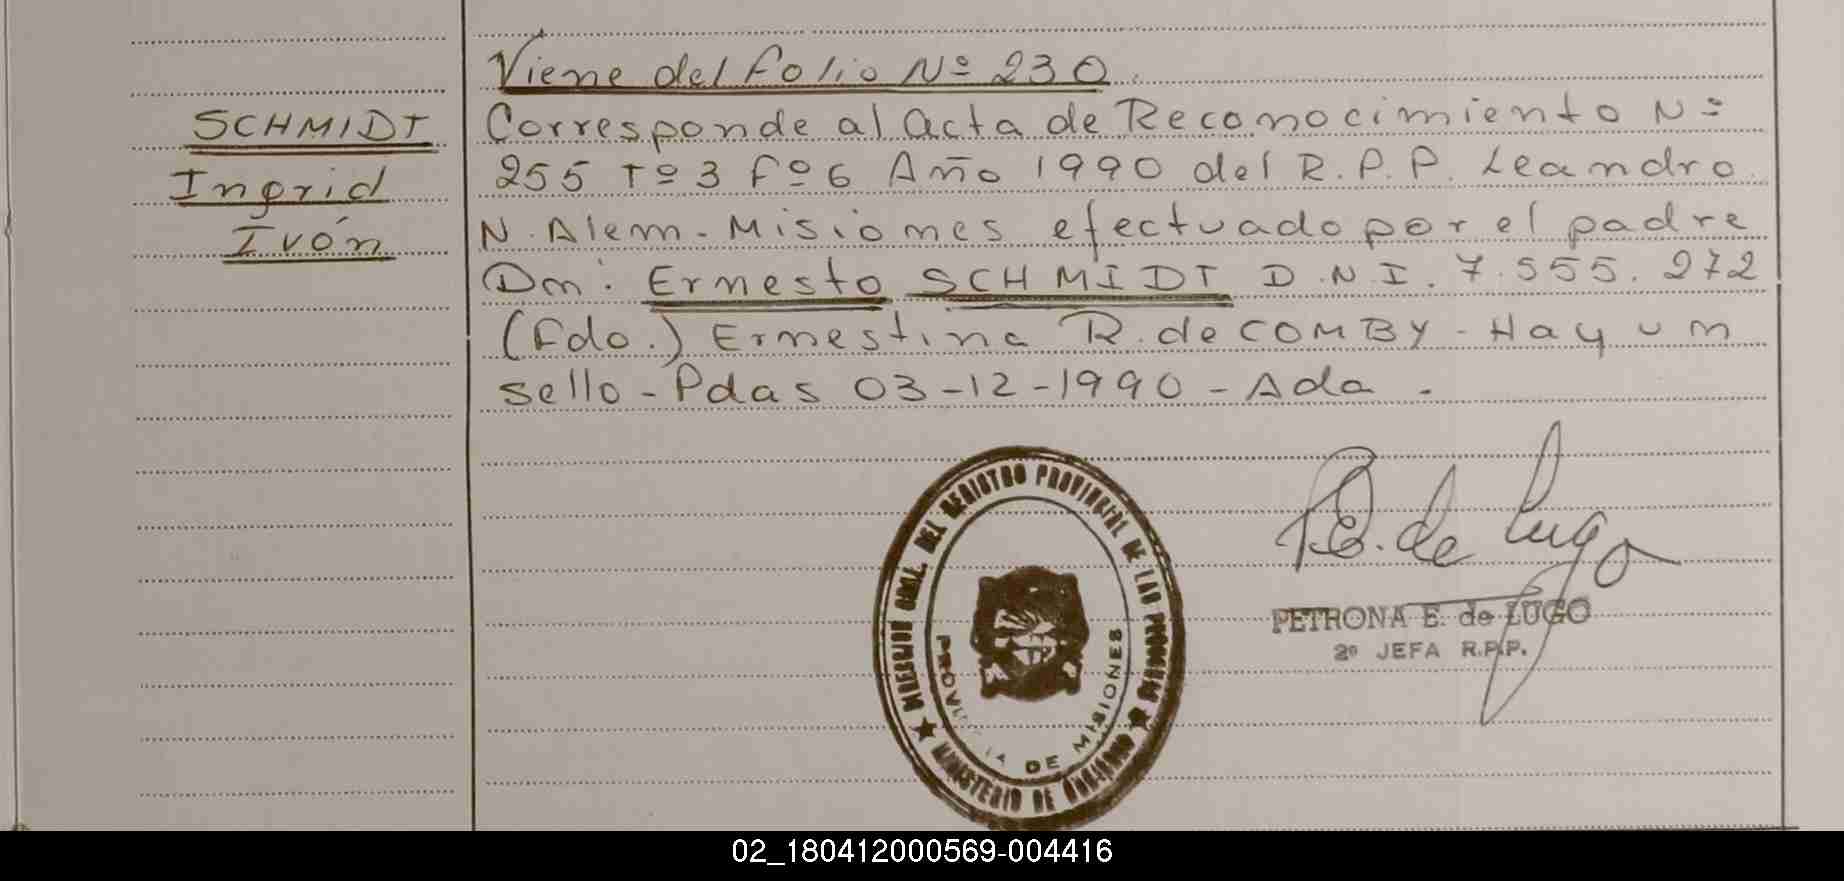 Viene del folio Nº 230.
SCHMIDT
Ingrid
Ivón
Corresponde al acta de Reconocimiento Nº
255 Tº 3 Fº 6 Año 1990 del R.P.P. Leandro
N. Alem - Misiones efectuado por el padre
Dn: Ernesto SCHMIDT D.N.I. 7.555.272
(Fdo.) Ernestina R. de COMBY - Hay un
sello - Pdas 03-12-1990 - Ada.
DIRECCION GRAL. DEL REGISTRO PROVINCIAL DE LAS PERSONAS
MINISTERIO DE GOBIERNO
PROVINCIA DE MISIONES
P.E. de Lugo
PETRONA E. de LUGO
2º JEFA R.P.P.
02_180412000569-004416